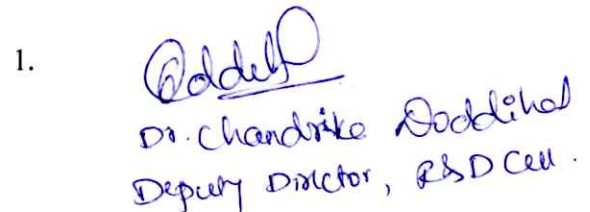 1.
Dr. Chandrika Doddihal
Deputy Director, R&D Cell.